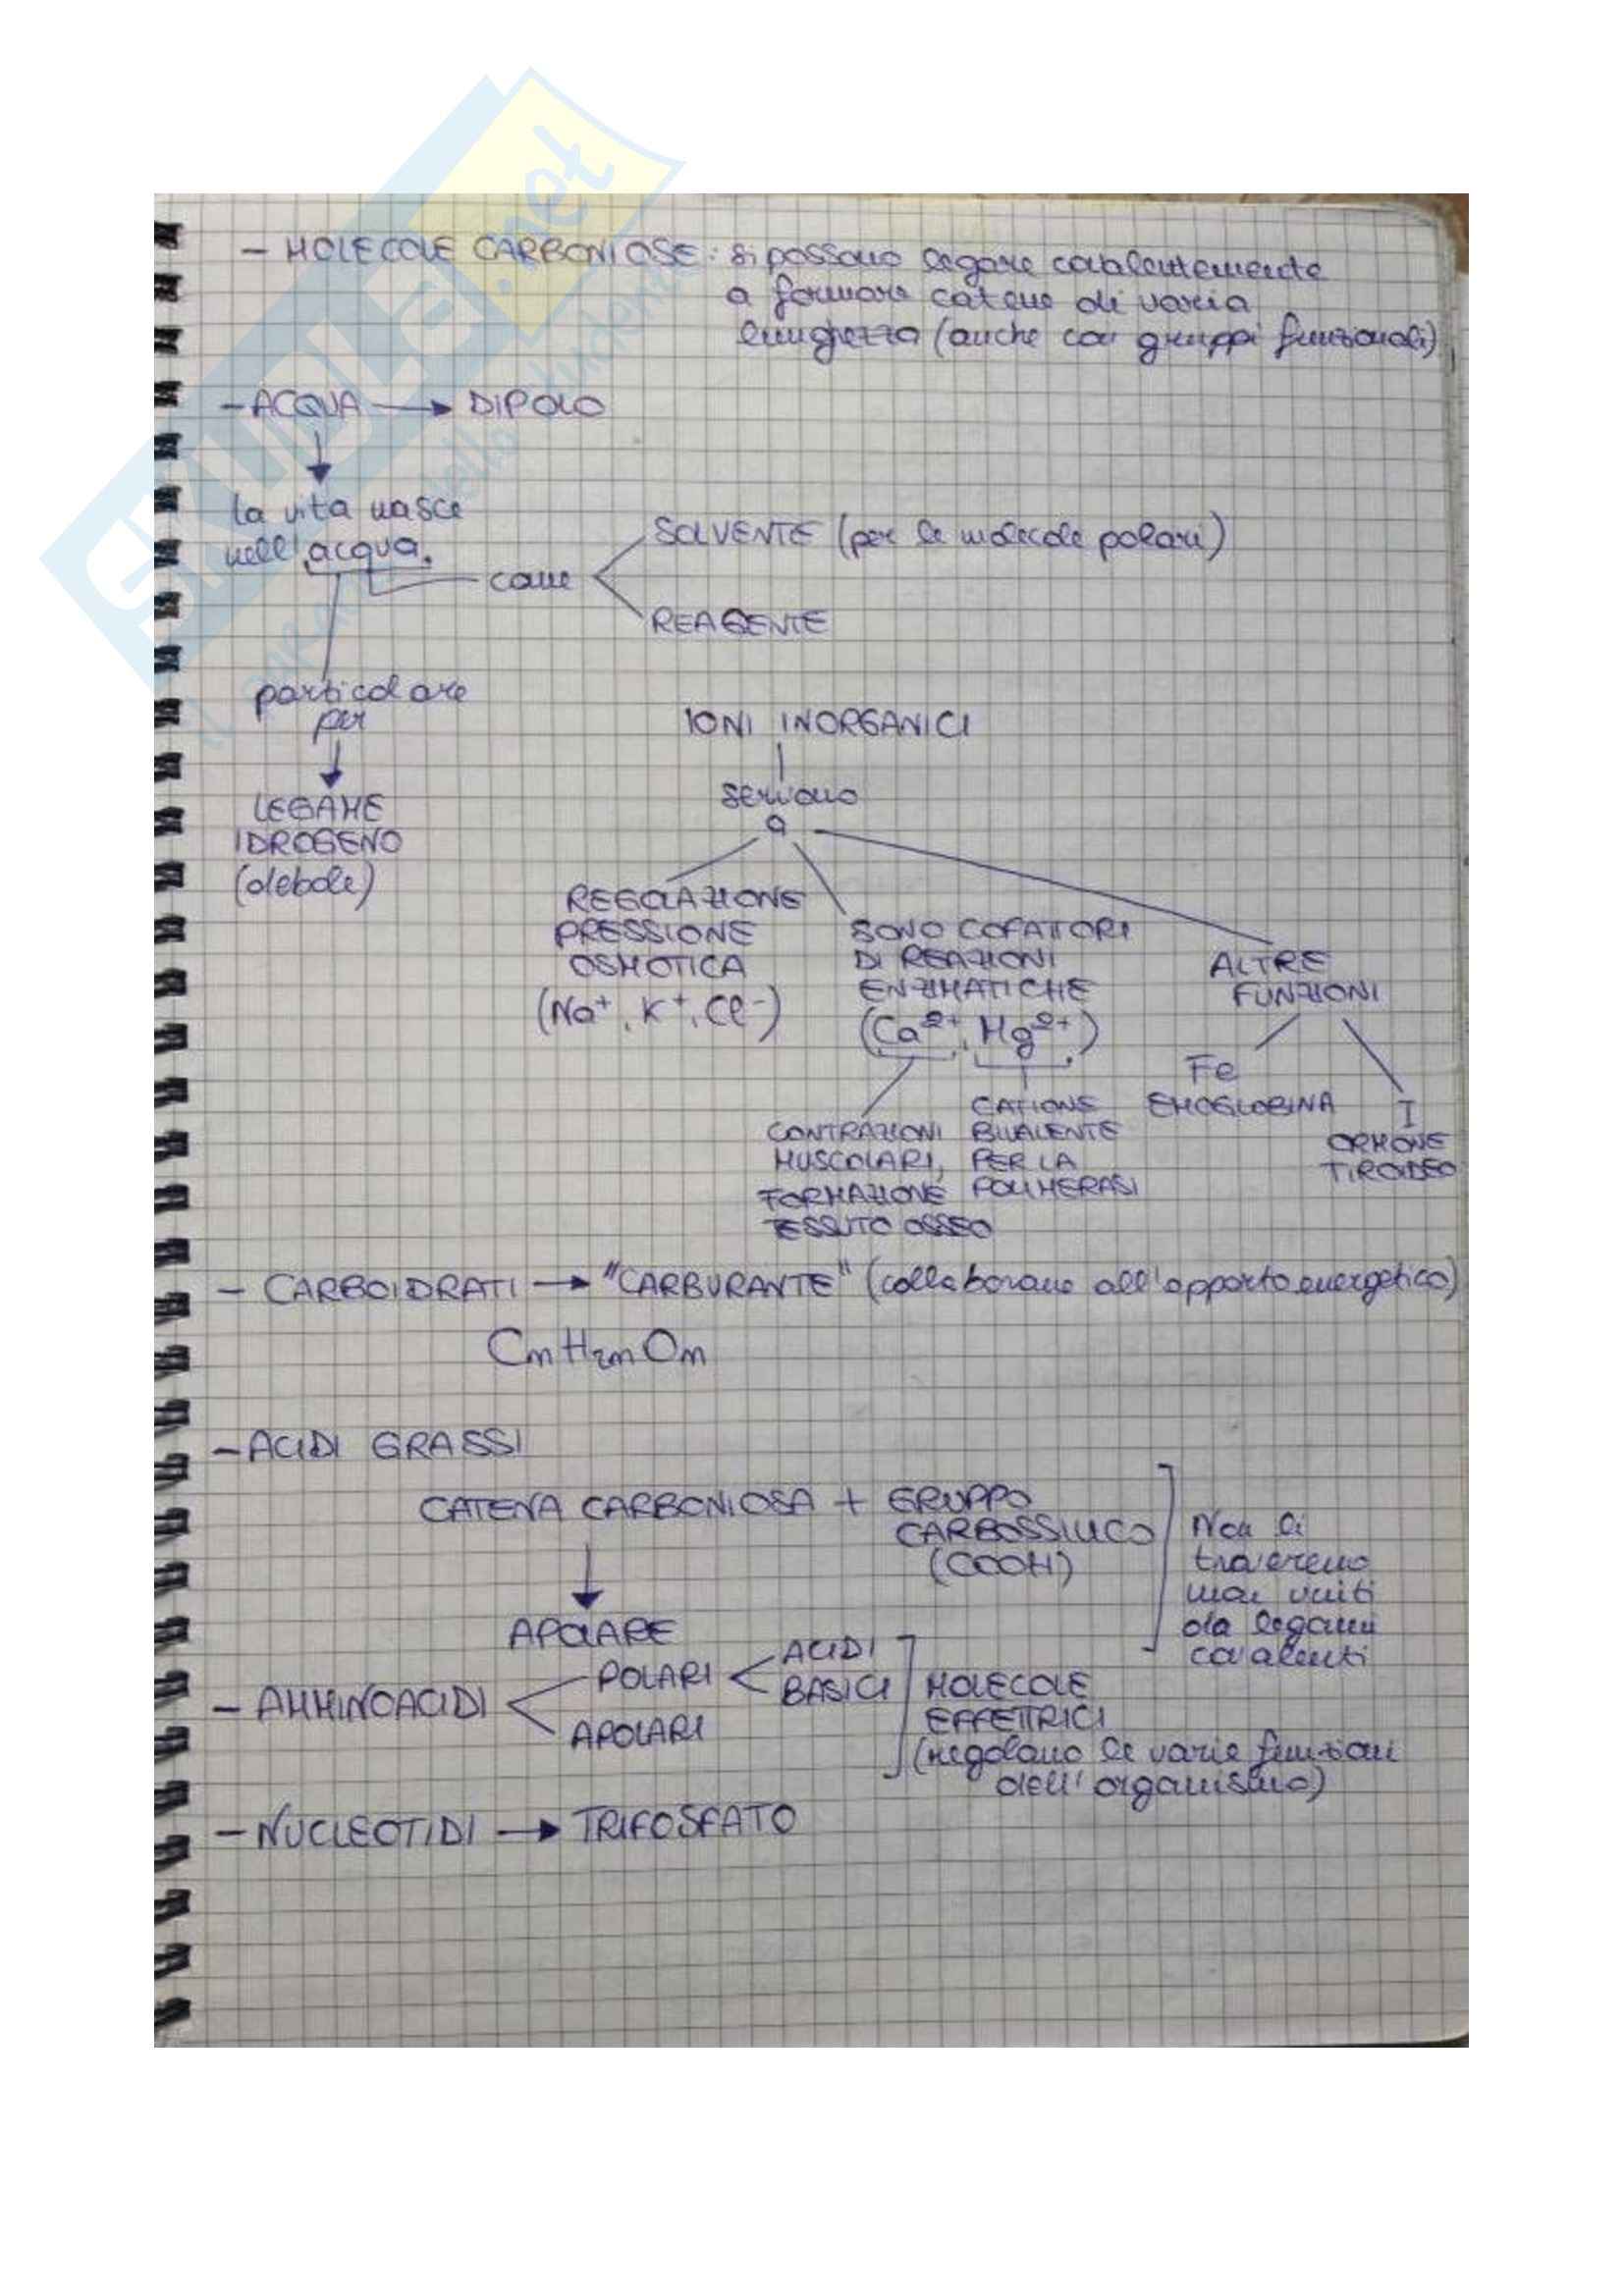 - MOLECOLE CARBONIOSE: si possono legare covalentemente
a formare catene di varia
lunghezza (anche con gruppi funzionali)
- ACQUA → DIPOLO
la vita nasce
nell'acqua.
come
SOLVENTE (per le molecole polari)
REAGENTE
particolare
per
LEGAME
IDROGENO
(debole)
IONI INORGANICI
servono
a
REGOLAZIONE
PRESSIONE
OSMOTICA
(Na⁺, K⁺, Cl⁻)
SONO COFATTORI
DI REAZIONI
ENZIMATICHE
(Ca²⁺, Mg²⁺)
CONTRAZIONI
MUSCOLARI,
FORMAZIONE
TESSUTO OSSEO
CATIONE
BIVALENTE
PER LA
POLIMERASI
ALTRE
FUNZIONI
Fe
EMOGLOBINA
I
ORMONE
TIROIDEO
- CARBOIDRATI → "CARBURANTE" (collaborano all'apporto energetico)
CnH2nOn
- ACIDI GRASSI
CATENA CARBONIOSA + GRUPPO
CARBOSSILICO
(COOH)
APOLARE
Non li
troveremo
mai uniti
da legami
covalenti
- AMMINOACIDI
POLARI
ACIDI
BASICI
APOLARI
MOLECOLE
EFFETTRICI
(regolano le varie funzioni
dell'organismo)
- NUCLEOTIDI → TRIFOSFATO
SKUOLA.net